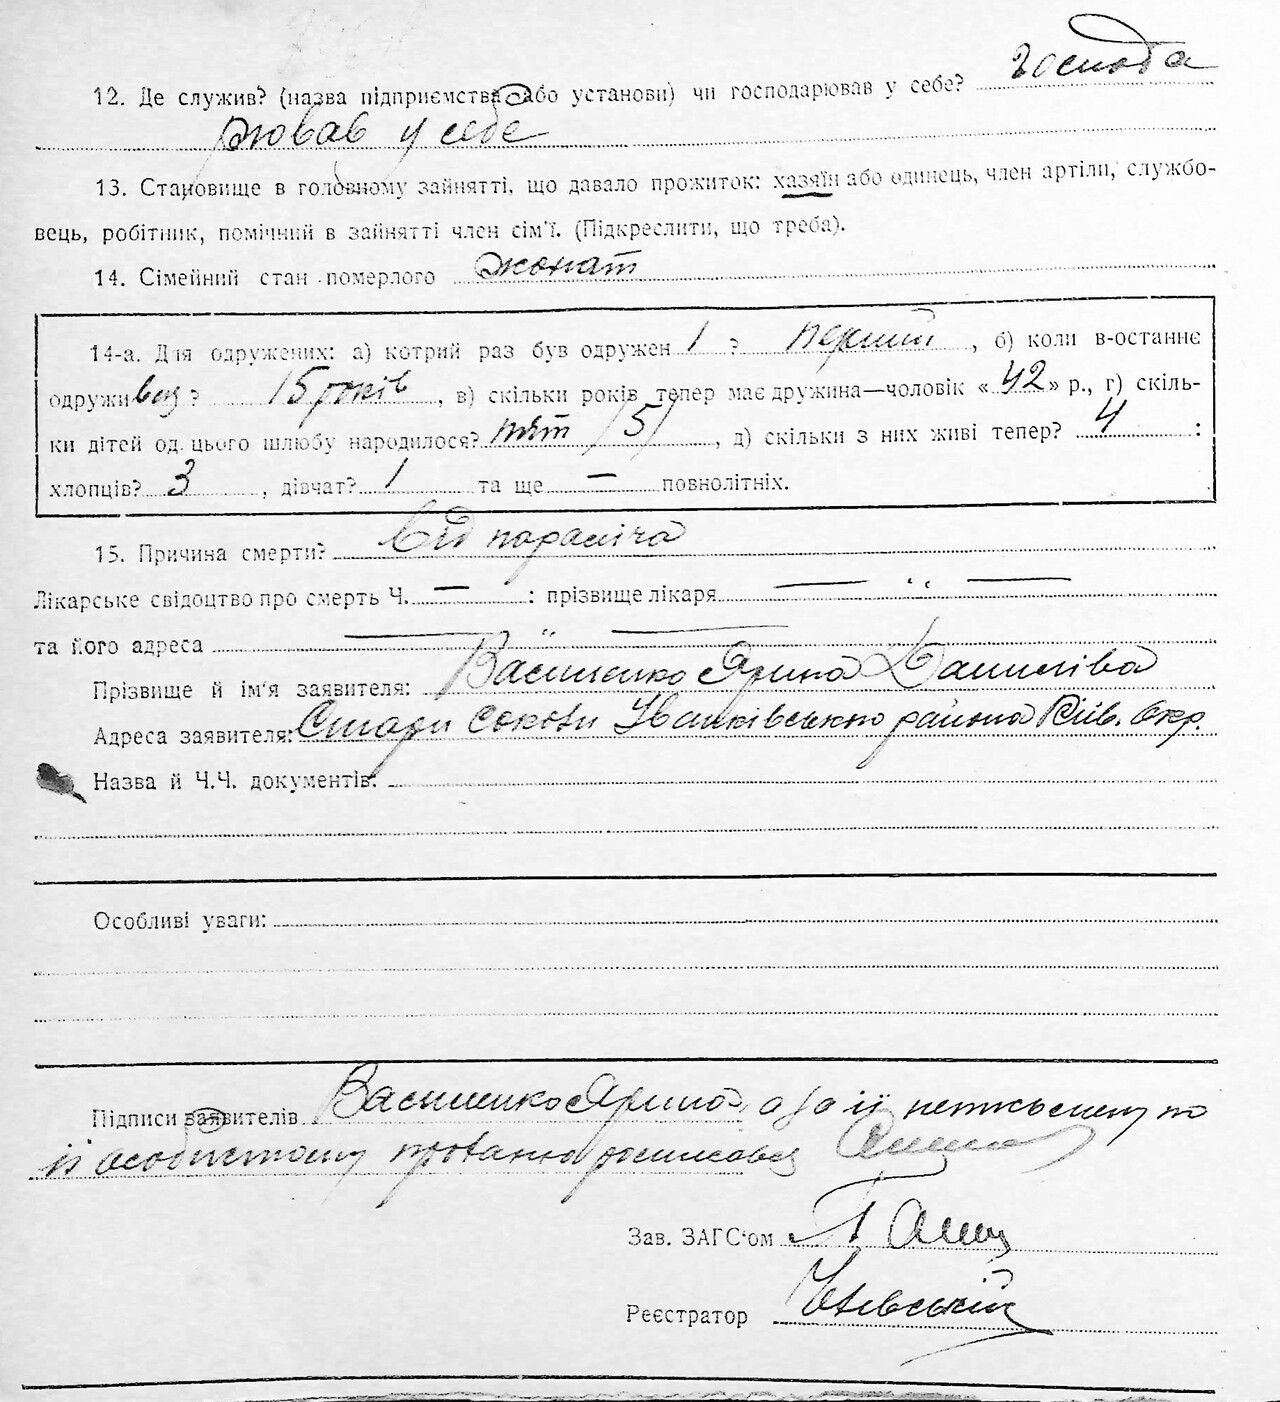 12. Де служив? (назва підприємства або установи) чи господарював у себе? господа
рював у себе
13. Становище в головному зайнятті, що давало прожиток: хазяїн або одинець, член артіли, службо-
вець, робітник, помічний в зайнятті член сім'ї. (Підкреслити, що треба).
14. Сімейний стан померлого жонат
14-а. Для одружених: а) котрий раз був одружен 1 ? перший , б) коли в-останнє
одруживсь? 15 років , в) скільки років тепер має дружина—чоловік «42» р., г) скіль-
ки дітей од цього шлюбу народилося? пят /5/ , д) скільки з них живі тепер? 4 :
хлопців? 3 , дівчат? 1 та ще — повнолітніх.
15. Причина смерти? Від параліча
Лікарське свідоцтво про смерть Ч. — : прізвище лікаря — " —
та його адреса — " —
Прізвище й ім'я заявителя: Василенко Ярина Данилівна
Адреса заявителя: Стари Соколи Іванківського района Київ. Окр.
Назва й Ч.Ч. документів:
Особливі уваги:
Підписи заявителів Василенко Ярина, а за її неписьмену по
її особистому проханню росписавсь
Зав. ЗАГС'ом
Реєстратор